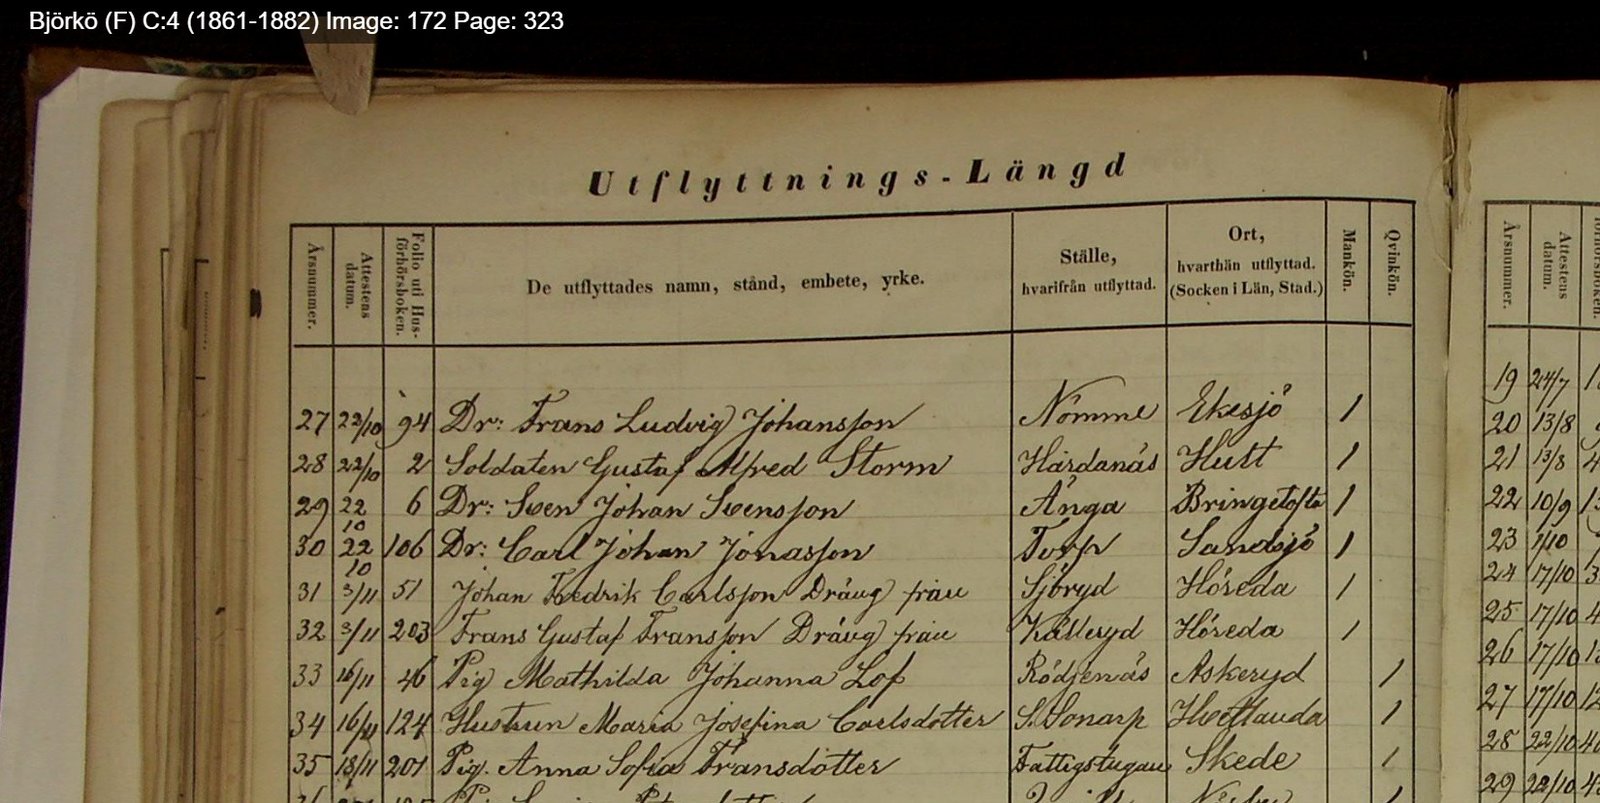 Björkö (F) C:4 (1861-1882) Image: 172 Page: 323
Utflyttnings-Längd
Årsnummer. Attestens datum. Folio uti Husförhörsboken. De utflyttades namn, stånd, embete, yrke. Ställe, hvarifrån utflyttad. Ort, hvarthän utflyttad. (Socken i Län, Stad.) Mankön. Qvinkön.
27 22/10 94 Dr: Frans Ludvig Johansson Nömme Ekesjö 1
28 22/10 2 Soldaten Gustaf Alfred Storm Hårdanäs Hult 1
29 22/10 6 Dr: Sven Johan Svensson Änga Bringetofta 1
30 22/10 106 Dr: Carl Johan Jonasson Torp Sandsjö 1
31 3/11 51 Johan Fredrik Carlsson Dräng från Sjöryd Höreda 1
32 3/11 203 Frans Gustaf Fransson Dräng från Källeryd Höreda 1
33 16/11 46 Pig Mathilda Johanna Löf Rödjenäs Askeryd 1
34 16/11 124 Hustrun Maria Josefina Carlsdotter S. Sonarp Hvetlanda 1
35 18/11 201 Pig. Anna Sofia Fransdotter Fattigstugan Skede 1
Årsnummer. Attestens datum.
19 24/7
20 13/8
21 13/8
22 10/9
23 1/10
24 17/10
25 17/10
26 17/10
27 17/10
28 22/10
29 22/10